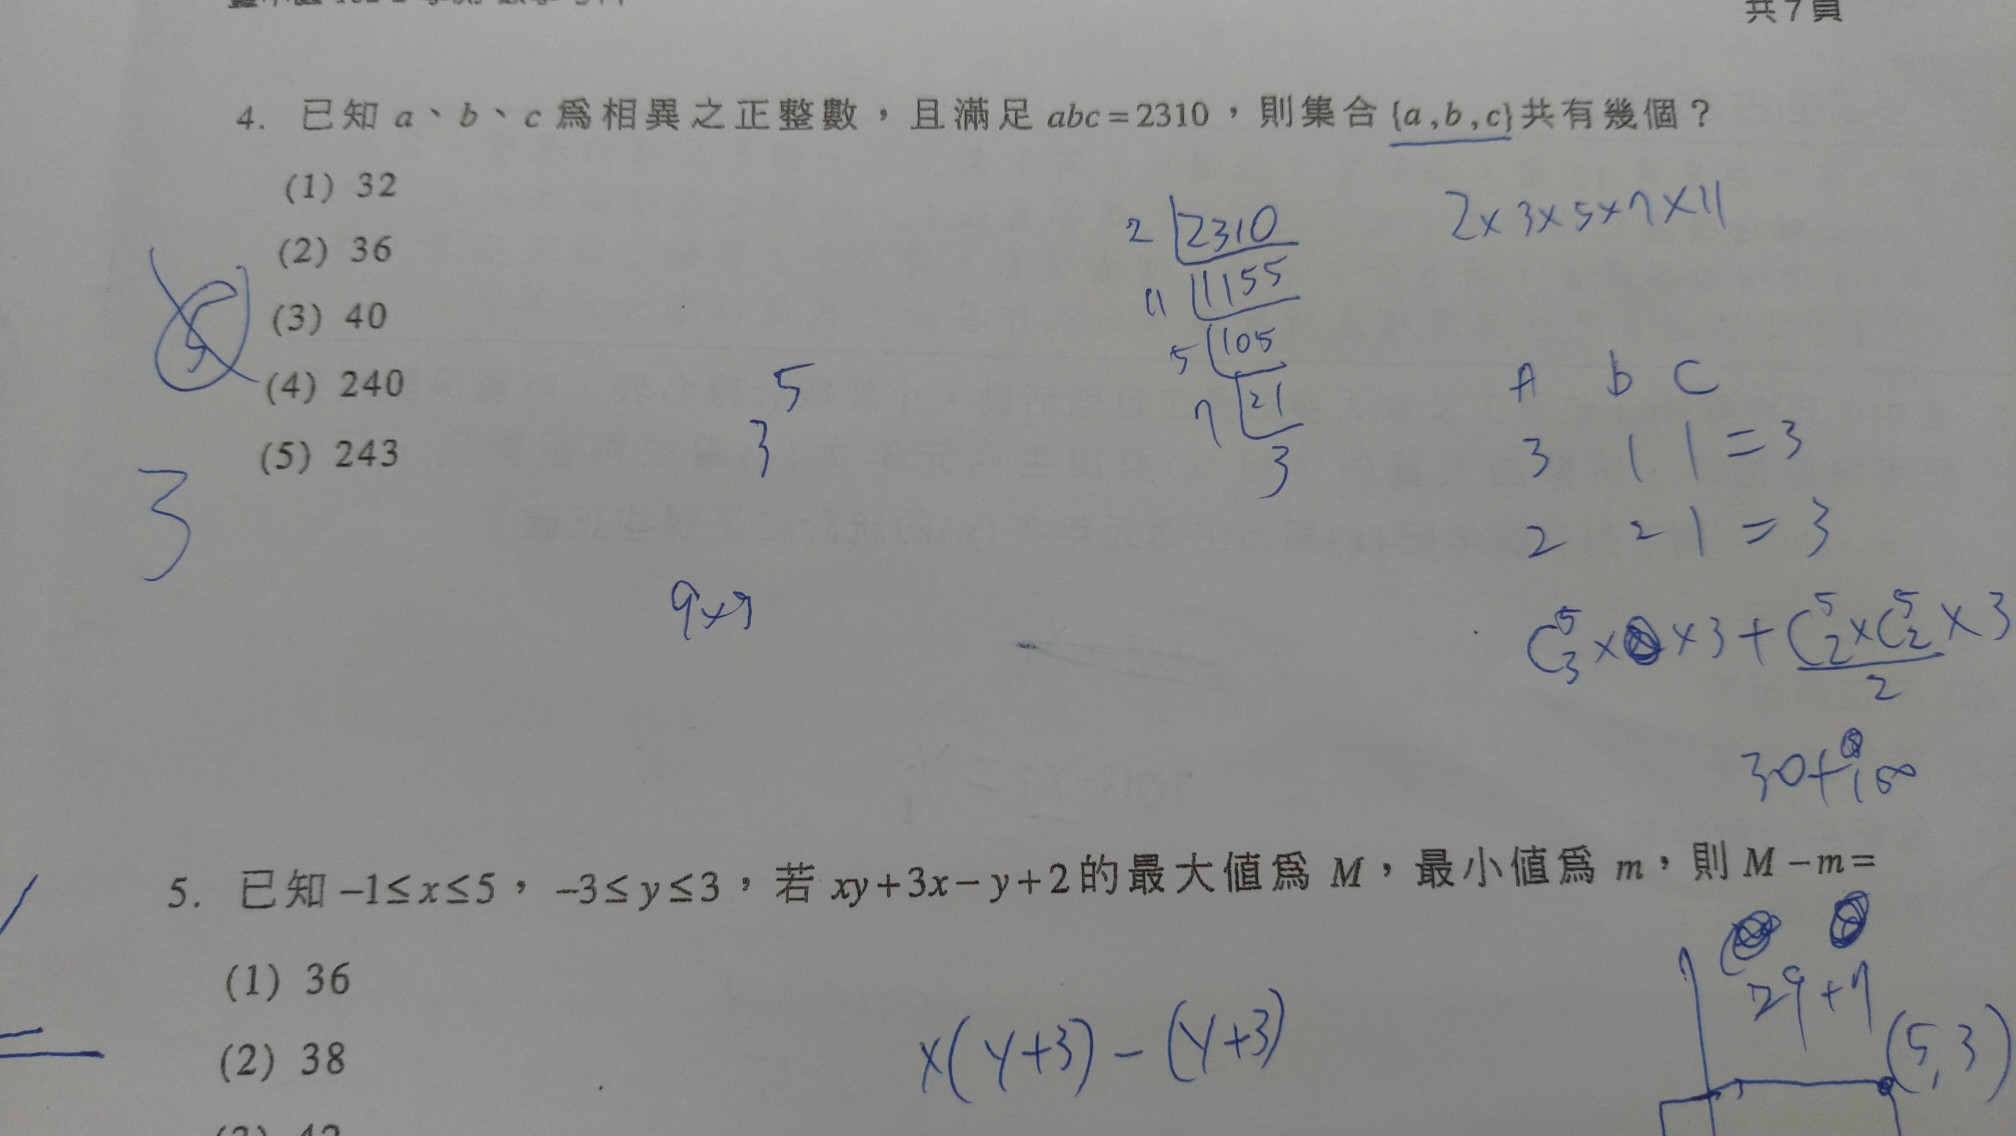 共7頁
4. 已知 a、b、c 為相異之正整數，且滿足 abc=2310，則集合{a,b,c}共有幾個？
(1) 32
(2) 36
(3) 40
(4) 240
(5) 243
2×3×5×7×11
2 2310
11 1155
5 105
7 21
3
A b C
3 1 1 = 3
2 2 1 = 3
3
5
3
9×9
30+
5. 已知 –1≤x≤5，–3≤y≤3，若 xy+3x–y+2的最大值為 M，最小值為 m，則 M–m=
(1) 36
(2) 38
29+7
x(y+3)-(y+3)
(5,3)